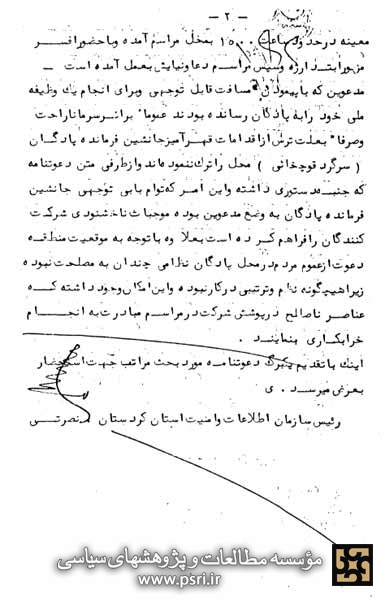 - ۲ -
معینه درحدود ساعت ۱۵۰۰ بمحل مراسم آمده و با حضور افسر
مزبور ابتدا رژه وسپس مراسم دعا ونیایش بعمل آمده است -
مدعوین که با پیمودن مسافت قابل توجهی وبرای انجام یک وظیفه
ملی خود را به پادگان رسانده بودند عموما" براثرسرما ناراحت
وصرفا" بعلت ترس از اقدامات قهرآمیز جانشین فرمانده پادگان
( سرگرد قوچخانی ) محل را ترک ننموده اند و از طرفی متن دعوتنامه
که جنبه دستوری داشته واین امر که توام با بی توجهی جانشین
فرمانده پادگان به وضع مدعوین بوده موجبات ناخشنودی شرکت
کنندگان را فراهم کرده است بعلاوه با توجه به موقعیت منطقه
دعوت ازعموم مردم درمحل پادگان نظامی چندان به مصلحت نبوده
زیرا هیچگونه نظم وترتیبی درکار نبوده و این امکان وجود داشته که
عناصر ناصالح درپوشش شرکت درمراسم مبادرت به انجام
خرابکاری بنمایند .
اینک با تقدیم یکبرگ دعوتنامه مورد بحث مراتب جهت استحضار
بعرض میرسد . ی
رئیس سازمان اطلاعات وامنیت استان کردستان منصرتی
مؤسسه مطالعات و پژوهشهای سیاسی
www.psri.ir